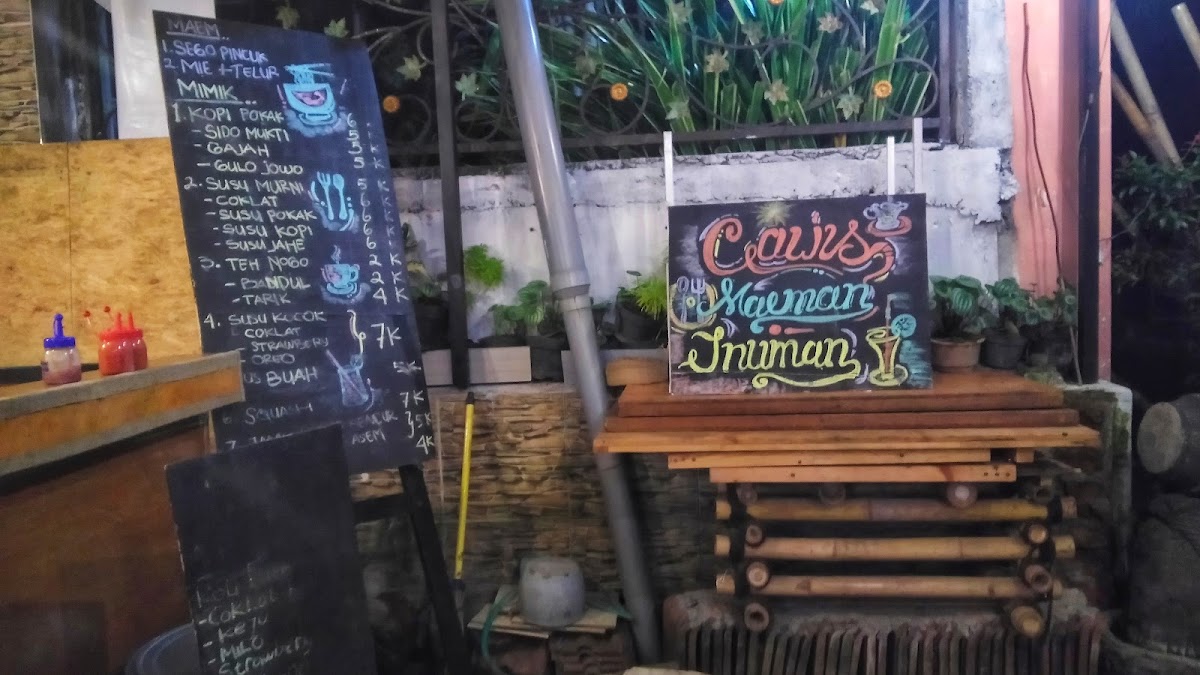 MAEM..
1. SEGO PINCUK
2 MIE + TELUR
MIMIK...
1. KOPI POKAK 6 K
- SIDO MUKTI 5 K
- GAJAH 5 K
- GULO JOWO 5 K
2. SUSU MURNI 5 K
- COKLAT 6
- SUSU POKAK 6
- SUSU KOPI 6
- SUSU JAHE 6
3. TEH NOGO 2 K
- BANDUL 2 K
- TARIK 4 K
4. SUSU KOCOK
COKLAT 7K
- STRAWBERY
- OREO
BUAH 5K
SQUASH 7K
5K
ASEM 4K
- COKLAT
- KEJU
- MILO
- STRAWBERY
Cawis
Maeman
Inuman